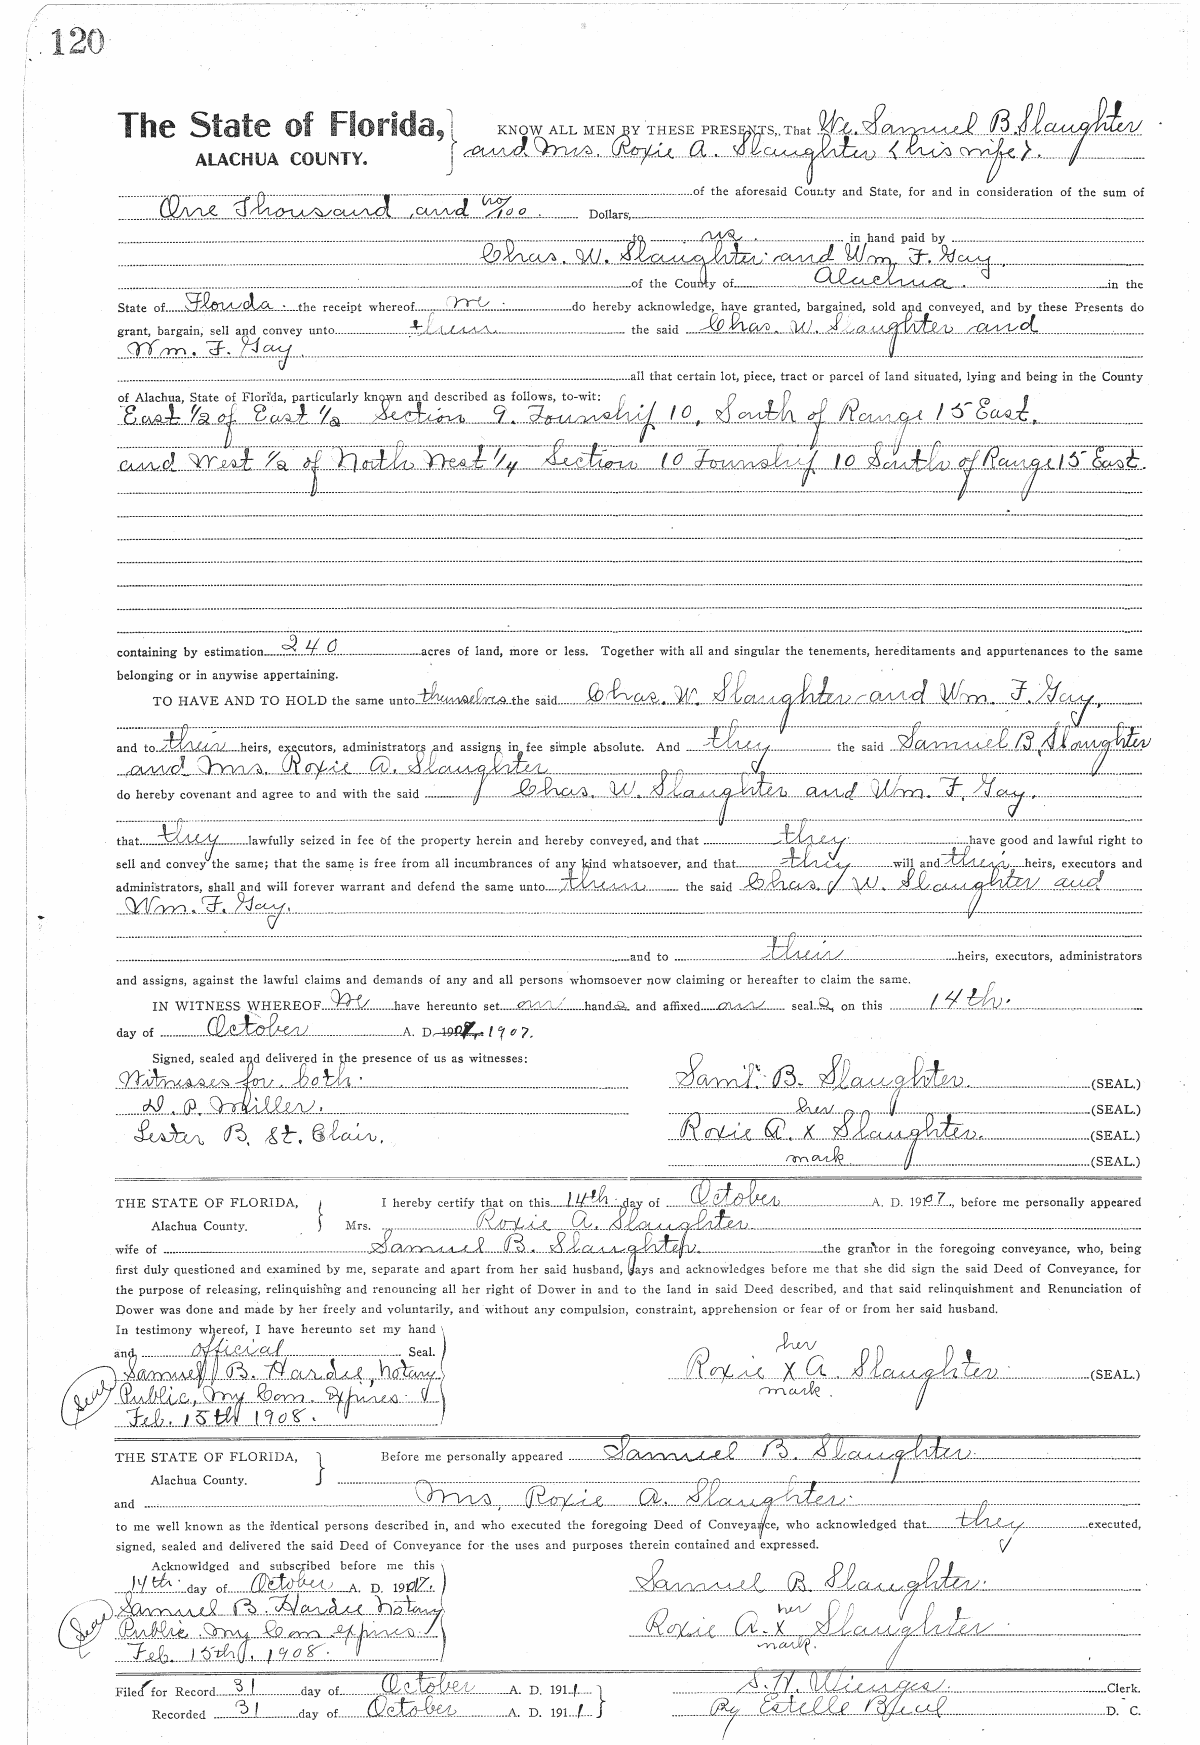 120
The State of Florida, KNOW ALL MEN BY THESE PRESENTS, That We, Samuel B. Slaughter
ALACHUA COUNTY. and Mrs. Roxie A. Slaughter (his wife).
of the aforesaid County and State, for and in consideration of the sum of
One Thousand and no/100 Dollars,
to us in hand paid by
Chas. W. Slaughter and Wm. F. Gay,
of the County of Alachua in the
State of Florida the receipt whereof we do hereby acknowledge, have granted, bargained, sold and conveyed, and by these Presents do
grant, bargain, sell and convey unto them the said Chas. W. Slaughter and
Wm. F. Gay.
all that certain lot, piece, tract or parcel of land situated, lying and being in the County
of Alachua, State of Florida, particularly known and described as follows, to-wit:
East 1/2 of East 1/2 Section 9. Township 10, South of Range 15 East.
and West 1/2 of North West 1/4 Section 10 Township 10 South of Range 15 East.
containing by estimation 240 acres of land, more or less. Together with all and singular the tenements, hereditaments and appurtenances to the same
belonging or in anywise appertaining.
TO HAVE AND TO HOLD the same unto themselves the said Chas. W. Slaughter and Wm. F. Gay,
and to their heirs, executors, administrators and assigns in fee simple absolute. And they the said Samuel B. Slaughter
and Mrs. Roxie A. Slaughter
do hereby covenant and agree to and with the said Chas. W. Slaughter and Wm. F. Gay.
that they lawfully seized in fee of the property herein and hereby conveyed, and that they have good and lawful right to
sell and convey the same; that the same is free from all incumbrances of any kind whatsoever, and that they will and their heirs, executors and
administrators, shall and will forever warrant and defend the same unto them the said Chas. W. Slaughter and
Wm. F. Gay.
and to their heirs, executors, administrators
and assigns, against the lawful claims and demands of any and all persons whomsoever now claiming or hereafter to claim the same.
IN WITNESS WHEREOF We have hereunto set our hands and affixed our seals, on this 14th.
day of October A. D. 1907, 1907.
Signed, sealed and delivered in the presence of us as witnesses:
Witnesses for both. Saml. B. Slaughter. (SEAL.)
D. P. Miller. her (SEAL.)
Lester B. St. Clair. Roxie A. x Slaughter. (SEAL.)
mark (SEAL.)
THE STATE OF FLORIDA, I hereby certify that on this 14th day of October A. D. 1907, before me personally appeared
Alachua County. Mrs. Roxie A. Slaughter
wife of Samuel B. Slaughter. the grantor in the foregoing conveyance, who, being
first duly questioned and examined by me, separate and apart from her said husband, says and acknowledges before me that she did sign the said Deed of Conveyance, for
the purpose of releasing, relinquishing and renouncing all her right of Dower in and to the land in said Deed described, and that said relinquishment and Renunciation of
Dower was done and made by her freely and voluntarily, and without any compulsion, constraint, apprehension or fear of or from her said husband.
In testimony whereof, I have hereunto set my hand
and official Seal. her
Samuel B. Hardee, Notary Roxie x A. Slaughter (SEAL.)
(Seal) Public, My Com. Expires mark.
Feb. 15th 1908.
THE STATE OF FLORIDA, Before me personally appeared Samuel B. Slaughter
Alachua County.
and Mrs. Roxie A. Slaughter
to me well known as the identical persons described in, and who executed the foregoing Deed of Conveyance, who acknowledged that they executed,
signed, sealed and delivered the said Deed of Conveyance for the uses and purposes therein contained and expressed.
Acknowldged and subscribed before me this
14th. day of October A. D. 1907. Samuel B. Slaughter.
Samuel B. Hardee Notary her
(Seal) Public. My Com expires Roxie A. x Slaughter
Feb. 15th, 1908. mark.
Filed for Record 31 day of October A. D. 1911 S. H. Wienges Clerk.
Recorded 31 day of October A. D. 1911 By Estelle D. C.